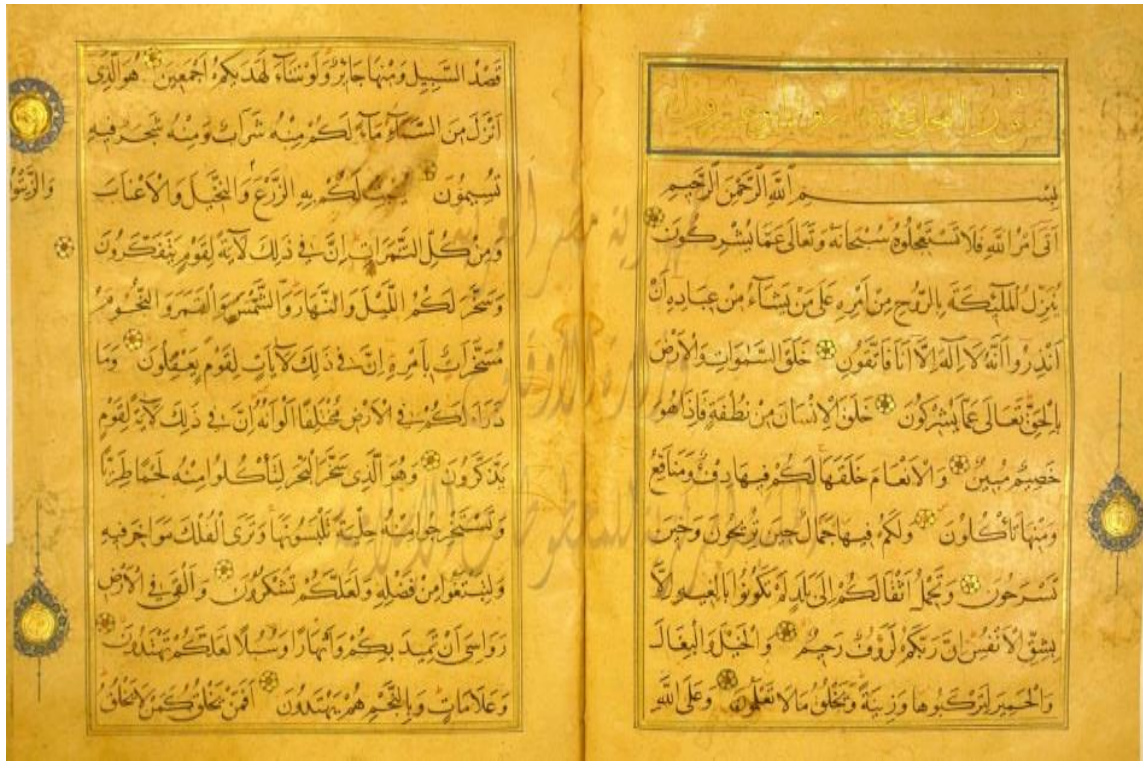 بسم الله الرحمن الرحيم
اَتٰى اَمْرُ اللّٰهِ فَلَا تَسْتَعْجِلُوهُ سُبْحَانَهُ وَتَعَالٰى عَمَّا يُشْرِكُونَ
يُنَزِّلُ الْمَلٰٓئِكَةَ بِالرُّوحِ مِنْ اَمْرِهِ عَلٰى مَنْ يَشَاءُ مِنْ عِبَادِهِ اَنْ
اَنْذِرُوا اَنَّهُ لَا اِلٰهَ اِلَّا اَنَا فَاتَّقُونِ خَلَقَ السَّمٰوَاتِ وَالْاَرْضَ
بِالْحَقِّ تَعَالٰى عَمَّا يُشْرِكُونَ خَلَقَ الْاِنْسَانَ مِنْ نُطْفَةٍ فَاِذَا هُوَ
خَصِيمٌ مُبِينٌ وَالْاَنْعَامَ خَلَقَهَا لَكُمْ فِيهَا دِفْءٌ وَمَنَافِعُ
وَمِنْهَا تَأْكُلُونَ وَلَكُمْ فِيهَا جَمَالٌ حِينَ تُرِيحُونَ وَحِينَ
تَسْرَحُونَ وَتَحْمِلُ اَثْقَالَكُمْ اِلٰى بَلَدٍ لَمْ تَكُونُوا بَالِغِيهِ اِلَّا
بِشِقِّ الْاَنْفُسِ اِنَّ رَبَّكُمْ لَرَؤُفٌ رَحِيمٌ وَالْخَيْلَ وَالْبِغَالَ
وَالْحَمِيرَ لِتَرْكَبُوهَا وَزِينَةً وَيَخْلُقُ مَا لَا تَعْلَمُونَ وَعَلَى اللّٰهِ
قَصْدُ السَّبِيلِ وَمِنْهَا جَائِرٌ وَلَوْ شَاءَ لَهَدٰيكُمْ اَجْمَعِينَ هُوَ الَّذِى
اَنْزَلَ مِنَ السَّمَاءِ مَاءً لَكُمْ مِنْهُ شَرَابٌ وَمِنْهُ شَجَرٌ فِيهِ
تُسِيمُونَ يُنْبِتُ لَكُمْ بِهِ الزَّرْعَ وَالنَّخِيلَ وَالْاَعْنَابَ
وَمِنْ كُلِّ الثَّمَرَاتِ اِنَّ فِى ذٰلِكَ لَاٰيَةً لِقَوْمٍ يَتَفَكَّرُونَ
وَسَخَّرَ لَكُمُ اللَّيْلَ وَالنَّهَارَ وَالشَّمْسَ وَالْقَمَرَ وَالنُّجُومُ
مُسَخَّرَاتٌ بِاَمْرِهِ اِنَّ فِى ذٰلِكَ لَاٰيَاتٍ لِقَوْمٍ يَعْقِلُونَ وَمَا
ذَرَاَ لَكُمْ فِى الْاَرْضِ مُخْتَلِفًا اَلْوَانُهُ اِنَّ فِى ذٰلِكَ لَاٰيَةً لِقَوْمٍ
يَذَّكَّرُونَ وَهُوَ الَّذِى سَخَّرَ الْبَحْرَ لِتَأْكُلُوا مِنْهُ لَحْمًا طَرِيًّا
وَتَسْتَخْرِجُوا مِنْهُ حِلْيَةً تَلْبَسُونَهَا وَتَرَى الْفُلْكَ مَوَاخِرَ فِيهِ
وَلِتَبْتَغُوا مِنْ فَضْلِهِ وَلَعَلَّكُمْ تَشْكُرُونَ وَاَلْقٰى فِى الْاَرْضِ
رَوَاسِىَ اَنْ تَمِيدَ بِكُمْ وَاَنْهَارًا وَسُبُلًا لَعَلَّكُمْ تَهْتَدُونَ
وَعَلَامَاتٍ وَبِالنَّجْمِ هُمْ يَهْتَدُونَ اَفَمَنْ يَخْلُقُ كَمَنْ لَا يَخْلُقُ
وَالزَّيْتُونَ